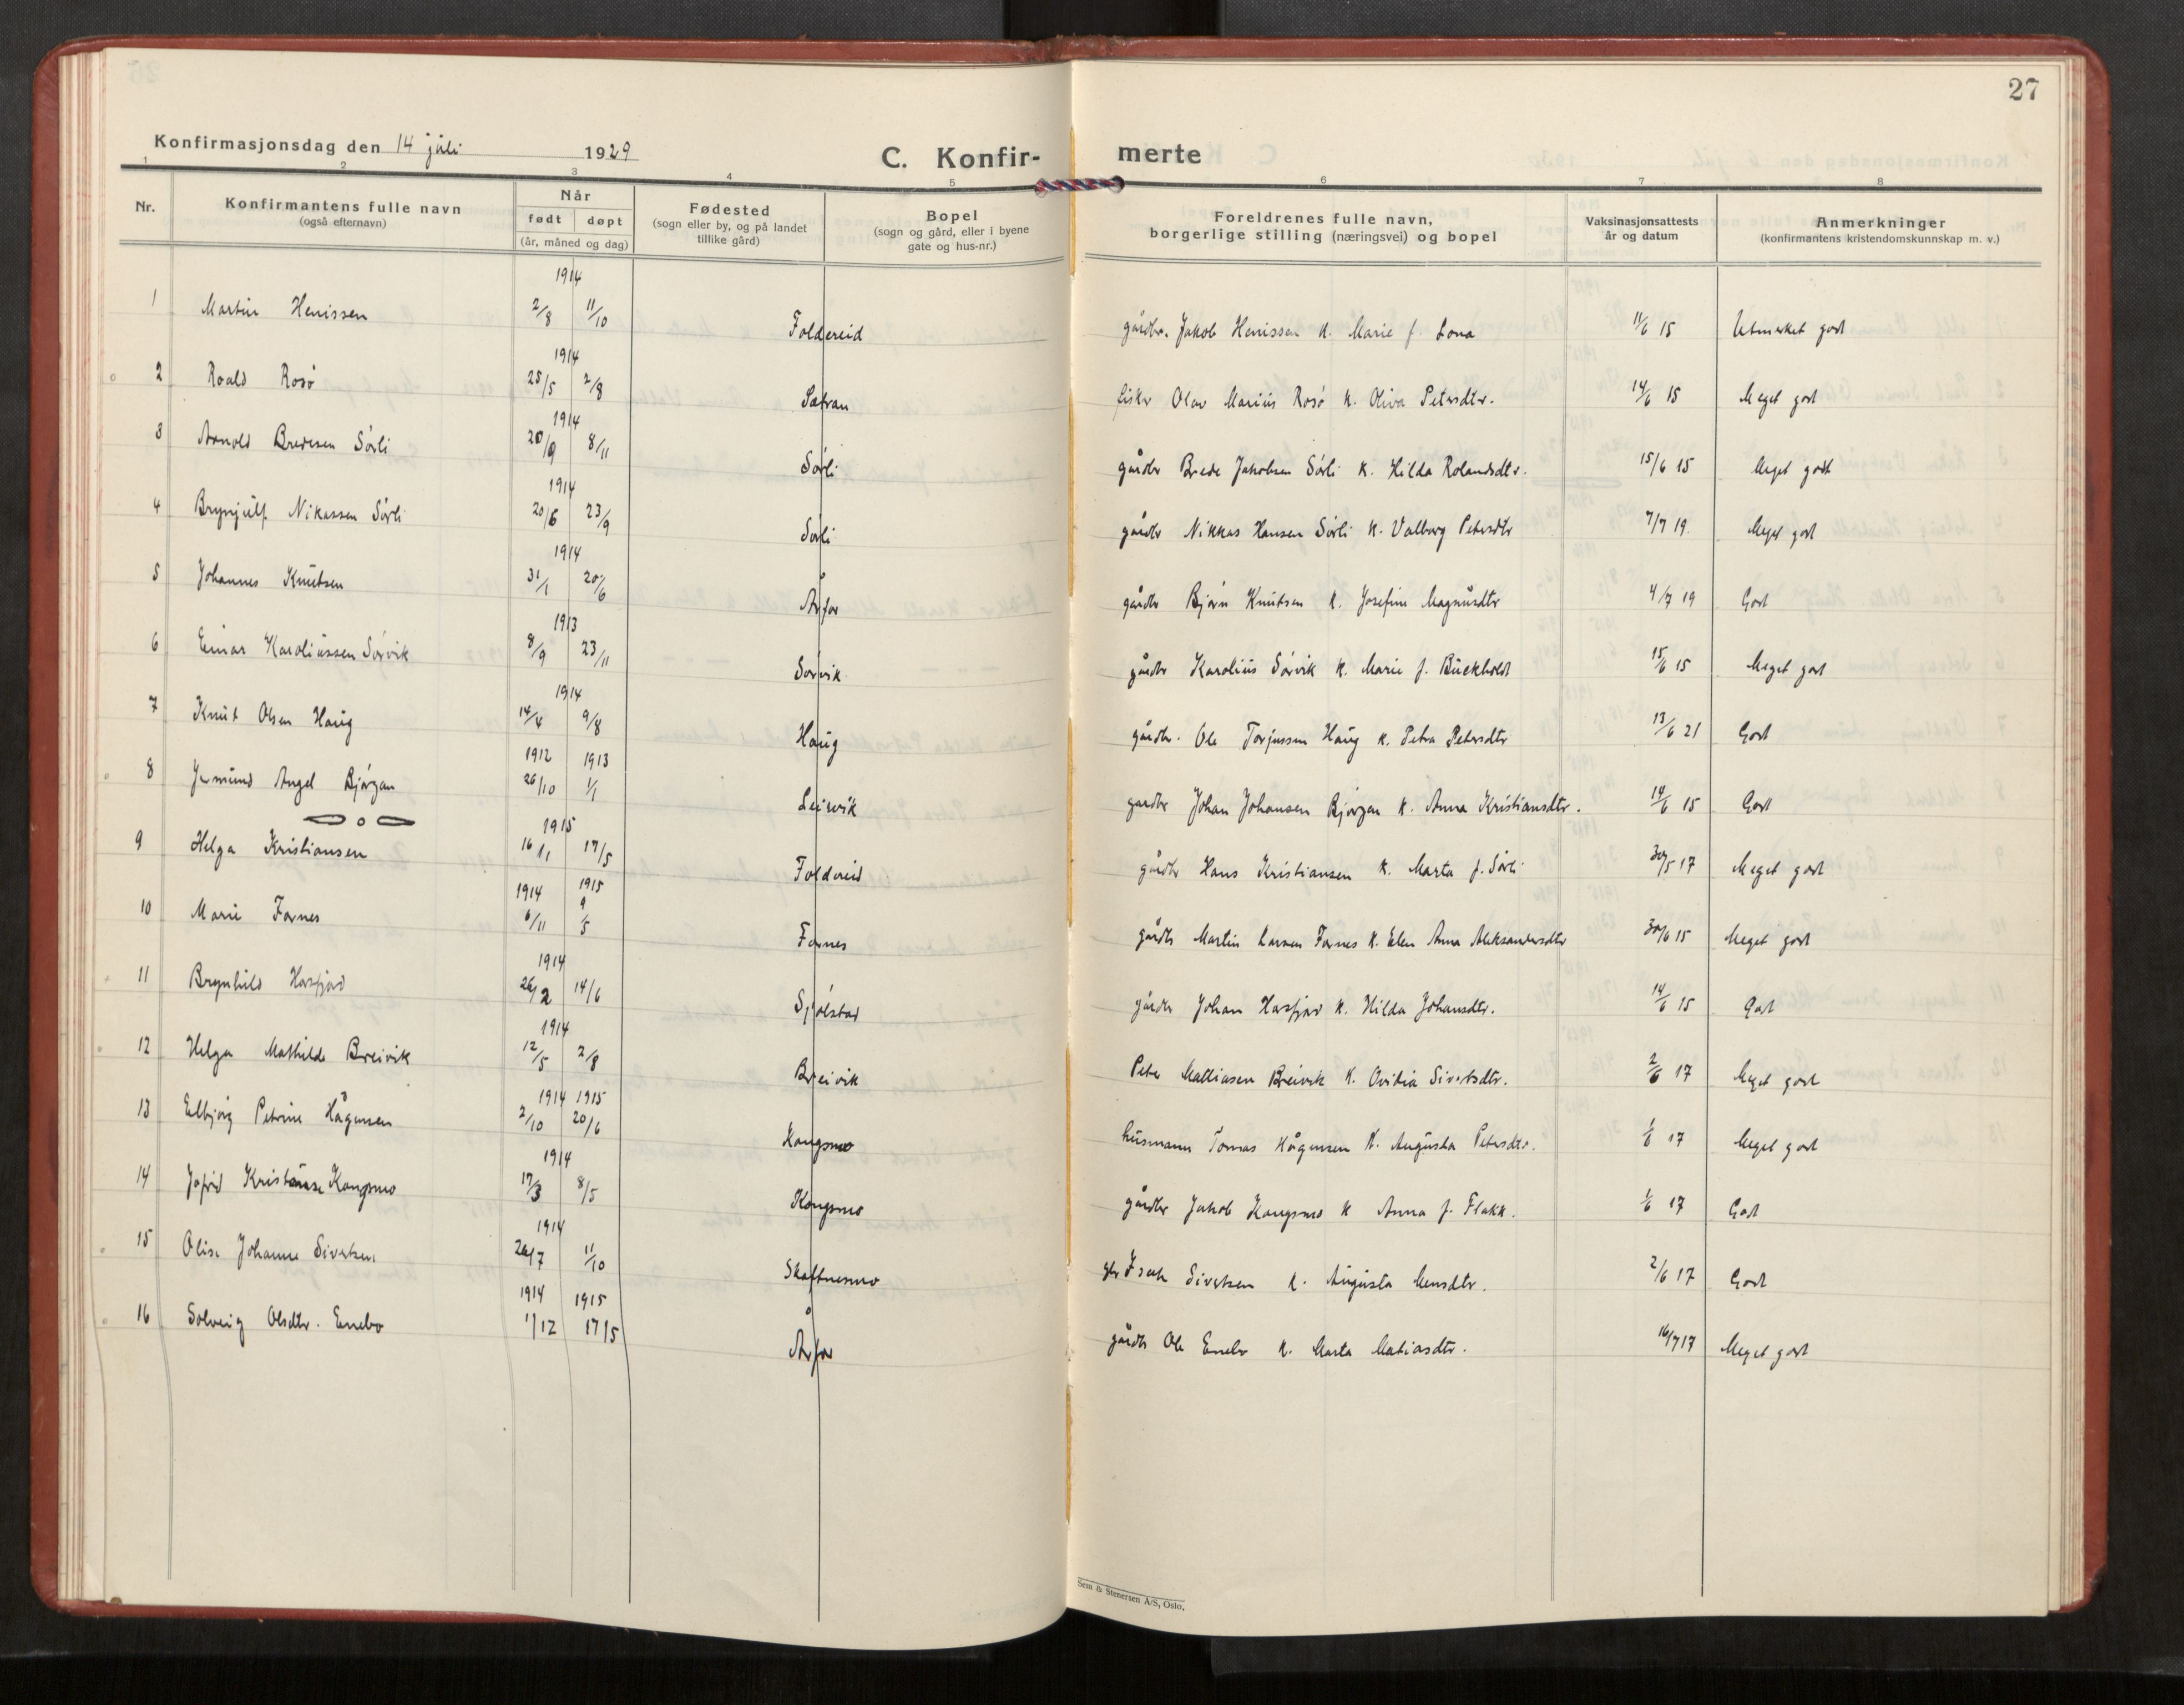 27
Konfirmasjonsdag den 14 juli 1929
C. Konfir- merte
1 2 3 4 5 6 7 8
Nr.
Konfirmantens fulle navn
(også efternavn)
Når
født døpt
(år, måned og dag)
Fødested
(sogn eller by, og på landet
tillike gård)
Bopel
(sogn og gård, eller i byene
gate og hus-nr.)
Foreldrenes fulle navn,
borgerlige stilling (næringsvei) og bopel
Vaksinasjonsattests
år og datum
Anmerkninger
(konfirmantens kristendomskunnskap m. v.)
1914
1 Martin Henissen 2/8 11/10 Foldereid gårdbr. Jakob Henissen k. Marie f. Lona 11/6 15 Utmerket godt
1914
2 Roald Rosø 25/5 2/8 fisker Olav Marius Rosø k. Oliva Petersdtr. 14/6 15 Meget godt
1914
3 Arnold Bredesen Sørli 20/9 8/11 Sørli gårdbr Brede Jakobsen Sørli k. Hilda Rolandsdtr. 15/6 15 Meget godt
1914
4 Brynjulf Nikassen Sørli 20/6 23/9 Sørli gårdbr Nikkas Hansen Sørli k. Valborg Petersdtr 7/7 19 Meget godt
1914
5 Johannes Knutsen 31/1 20/6 Årfor gårdbr Bjørn Knutsen k. Josefine Magnusdtr 4/7 19 Godt
1913
6 Einar Karoliussen Sørvik 8/9 23/11 Sørvik gårdbr Karolius Sørvik k. Marie f. Buckholdt 15/6 15 Meget godt
1914
7 Knut Olsen Haug 14/4 9/8 Haug gårdbr. Ole Torjussen Haug k. Petra Petersdtr 13/6 21 Godt
1912 1913
8 Jermund Angel Bjørgan 26/10 1/1 Leirvik gardbr Johan Johansen Bjørgan k. Anna Kristiansdtr. 14/6 15 Godt
1915
9 Helga Kristiansen 16/1 17/5 Foldereid gårdbr Hans Kristiansen k. Marta f. Sørli 30/5 17 Meget godt
1914 1915
10 Marie Fornes 6/11 9/5 Fornes gårdbr Martin Larsen Fornes k. Elen Anna Aleksandersdtr 30/6 15 Meget godt
1914
11 Brynhild Horsfjord 26/2 14/6 Sjølstad gårdbr Johan Horsfjord k. Hilda Johansdtr. 14/6 15 Godt
1914
12 Helga Mathilde Breivik 12/5 2/8 Breivik Peter Mattiasen Breivik k. Ovidia Sivertsdtr. 2/6 17 Meget godt
1914 1915
13 Elbjørg Petrine Hågensen 2/10 20/6 Kongsmo husmann Tomas Hågensen k. Augusta Petersdtr. 1/6 17 Meget godt
1914
14 Jofrid Kristianse Kongsmo 17/3 8/5 Kongsmo gårdbr Jakob Kongsmo k Anna f. Flakk. 1/6 17 Godt
1914
15 Olise Johanne Sivertsen 26/7 11/10 Skaftnesmo gbr Isak Sivertsen k. Augusta Mensdtr. 2/6 17 Godt
1914 1915
16 Solveig Olsdtr. Enebo 1/12 17/5 Årfor gårdbr Ole Enebo k. Marta Matiasdtr. 16/7 17 Meget godt
Sem & Stenersen A/S, Oslo.